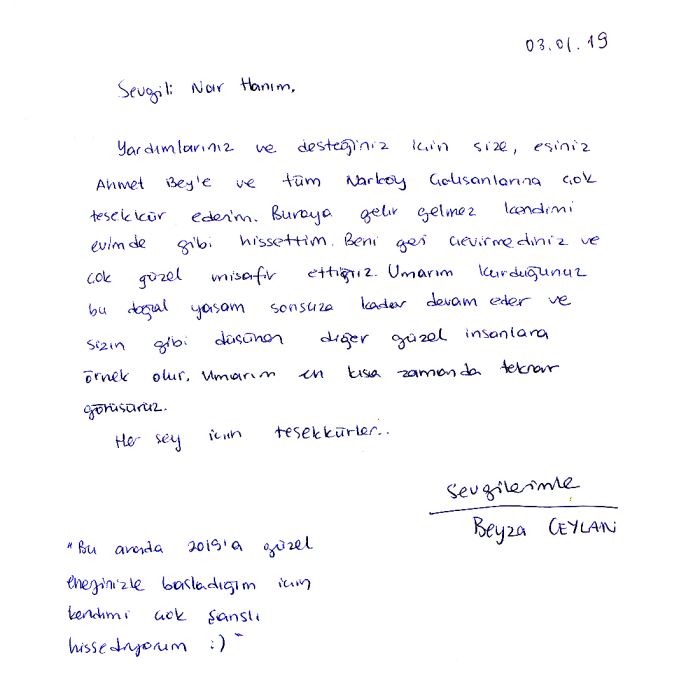 03.01.19
Sevgili Nar Hanım,
Yardımlarınız ve desteğiniz için size, eşiniz
Ahmet Bey'e ve tüm Narköy Çalışanlarına çok
teşekkür ederim. Buraya gelir gelmez kendimi
evimde gibi hissettim. Beni geri çevirmediniz ve
çok güzel misafir ettiğiniz. Umarım kurduğunuz
bu doğal yaşam sonsuza kadar devam eder ve
sizin gibi düşünen diğer güzel insanlara
örnek olur. Umarım en kısa zamanda tekrar
görüşürüz.
Her şey için teşekkürler..
Sevgilerimle
Beyza CEYLAN
"Bu arada 2019'a güzel
enerjinizle başladığım için
kendimi çok şanslı
hissediyorum :)"